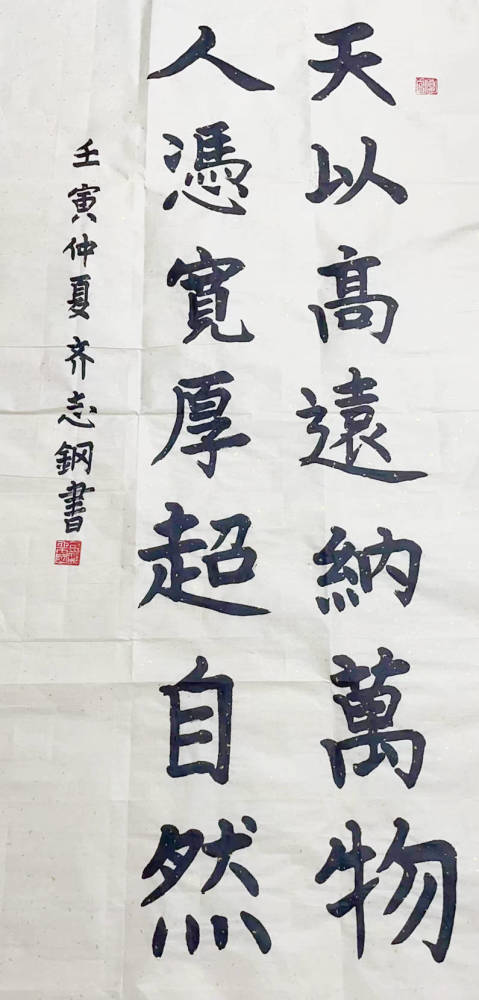 天以高遠納萬物
人憑寬厚超自然
壬寅仲夏齐志鋼書